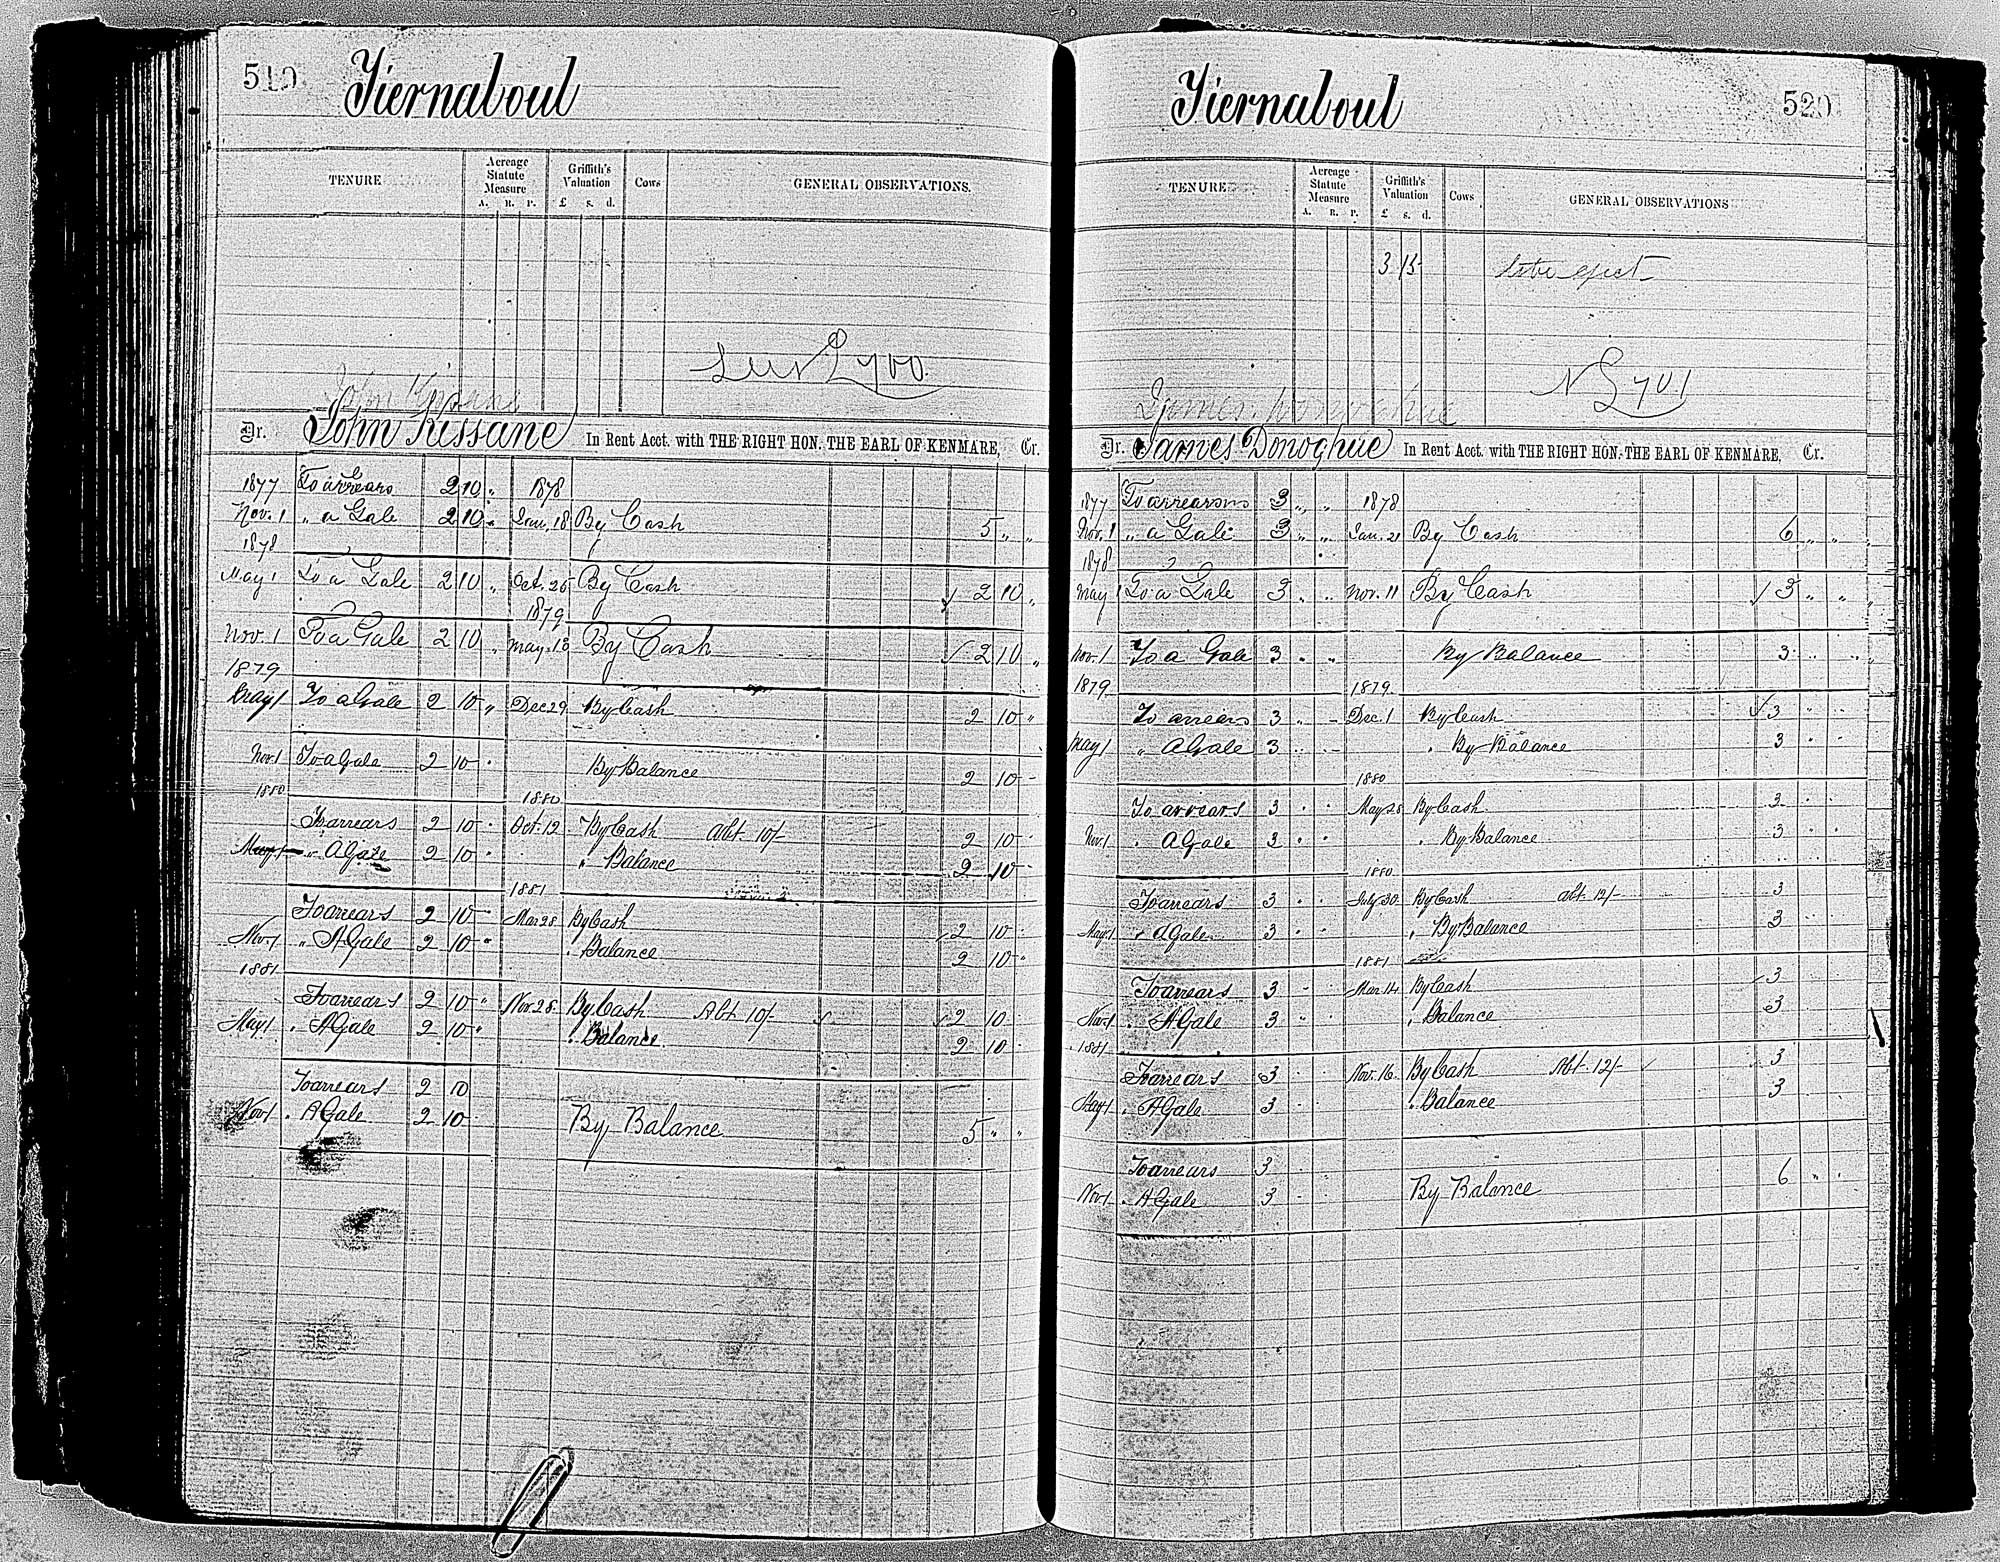 Tiernaboul
TENURE
Acreage Statute Measure
A. R. P.
Griffith's Valuation
£ s. d.
Cows
GENERAL OBSERVATIONS.
700
John Kissane
Dr. John Kissane In Rent Acct. with THE RIGHT HON. THE EARL OF KENMARE, Cr.
1877 To arrears 2 10 „ 1878
Nov. 1 „ a Gale 2 10 „ Jan. 18 By Cash 5 „ „
1878
May 1 To a Gale 2 10 „ Oct. 25 By Cash ✓ 2 10 „
1879
Nov. 1 To a Gale 2 10 „ May 13 By Cash ✓ 2 10 „
1879
May 1 To a Gale 2 10 „ Dec 29 By Cash 2 10 „
Nov. 1 To a Gale 2 10 „ By Balance 2 10 -
1880 1880
To arrears 2 10 „ Oct. 12 By Cash Abt 10/- 2 10
May 1 „ A Gale 2 10 „ „ Balance 2 10
1881
To arrears 2 10 „ Mar 28 By Cash ✓ 2 10
Nov. 1 „ A Gale 2 10 „ „ Balance 2 10 „
1881
To arrears 2 10 „ Nov 28 By Cash Abt 10/- ✓ ✓ 2 10
May 1 „ A Gale 2 10 „ „ Balance 2 10
To arrears 2 10
Nov 1 „ A Gale 2 10 By Balance 5 „ „
Tiernaboul 520
TENURE
Acreage Statute Measure
A. R. P.
Griffith's Valuation
£ s. d.
Cows
GENERAL OBSERVATIONS
3 15
701
James Donoghue
Dr. James Donoghue In Rent Acct. with THE RIGHT HON. THE EARL OF KENMARE, Cr.
1877 To arrears 3 „ „ 1878
Nov. 1 „ a Gale 3 „ „ Jan. 21 By Cash 6 „ „
1878
May 1 To a Gale 3 „ „ Nov. 11 By Cash ✓ 3 „ „
Nov. 1 To a Gale 3 „ „ By Balance 3 „ „
1879 1879
To arrears 3 „ - Dec. 1 By Cash ✓ 3 „ „
May 1 „ A Gale 3 „ - „ By Balance 3 „ „
1880
To arrears 3 „ „ May 28 By Cash 3 „
Nov. 1 „ A Gale 3 „ „ „ By Balance 3 „ „
1880
To arrears 3 „ „ July 30 By Cash abt. 12/- 3
May 1 „ A Gale 3 „ „ „ By Balance 3
1881
To arrears 3 - „ Mar 14 By Cash ✓ 3
Nov. 1 „ A Gale 3 „ „ „ Balance 3
1881
To arrears 3 „ „ Nov. 16 By Cash Abt 12/- ✓ 3
May 1 „ A Gale 3 - „ „ Balance 3
To arrears 3 „
Nov 1 „ A Gale 3 - By Balance 6 „ „